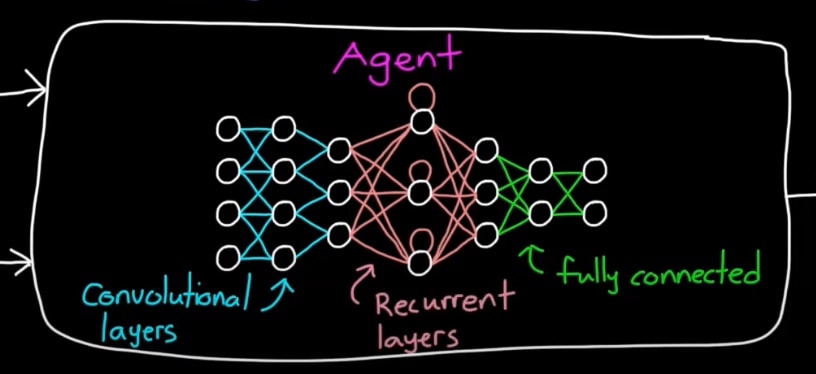 Agent
Convolutional
layers
Recurrent
layers
fully connected